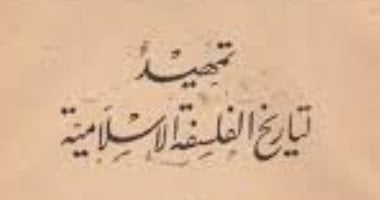 تمهيد
لتاريخ الفلسفة الإسلامية